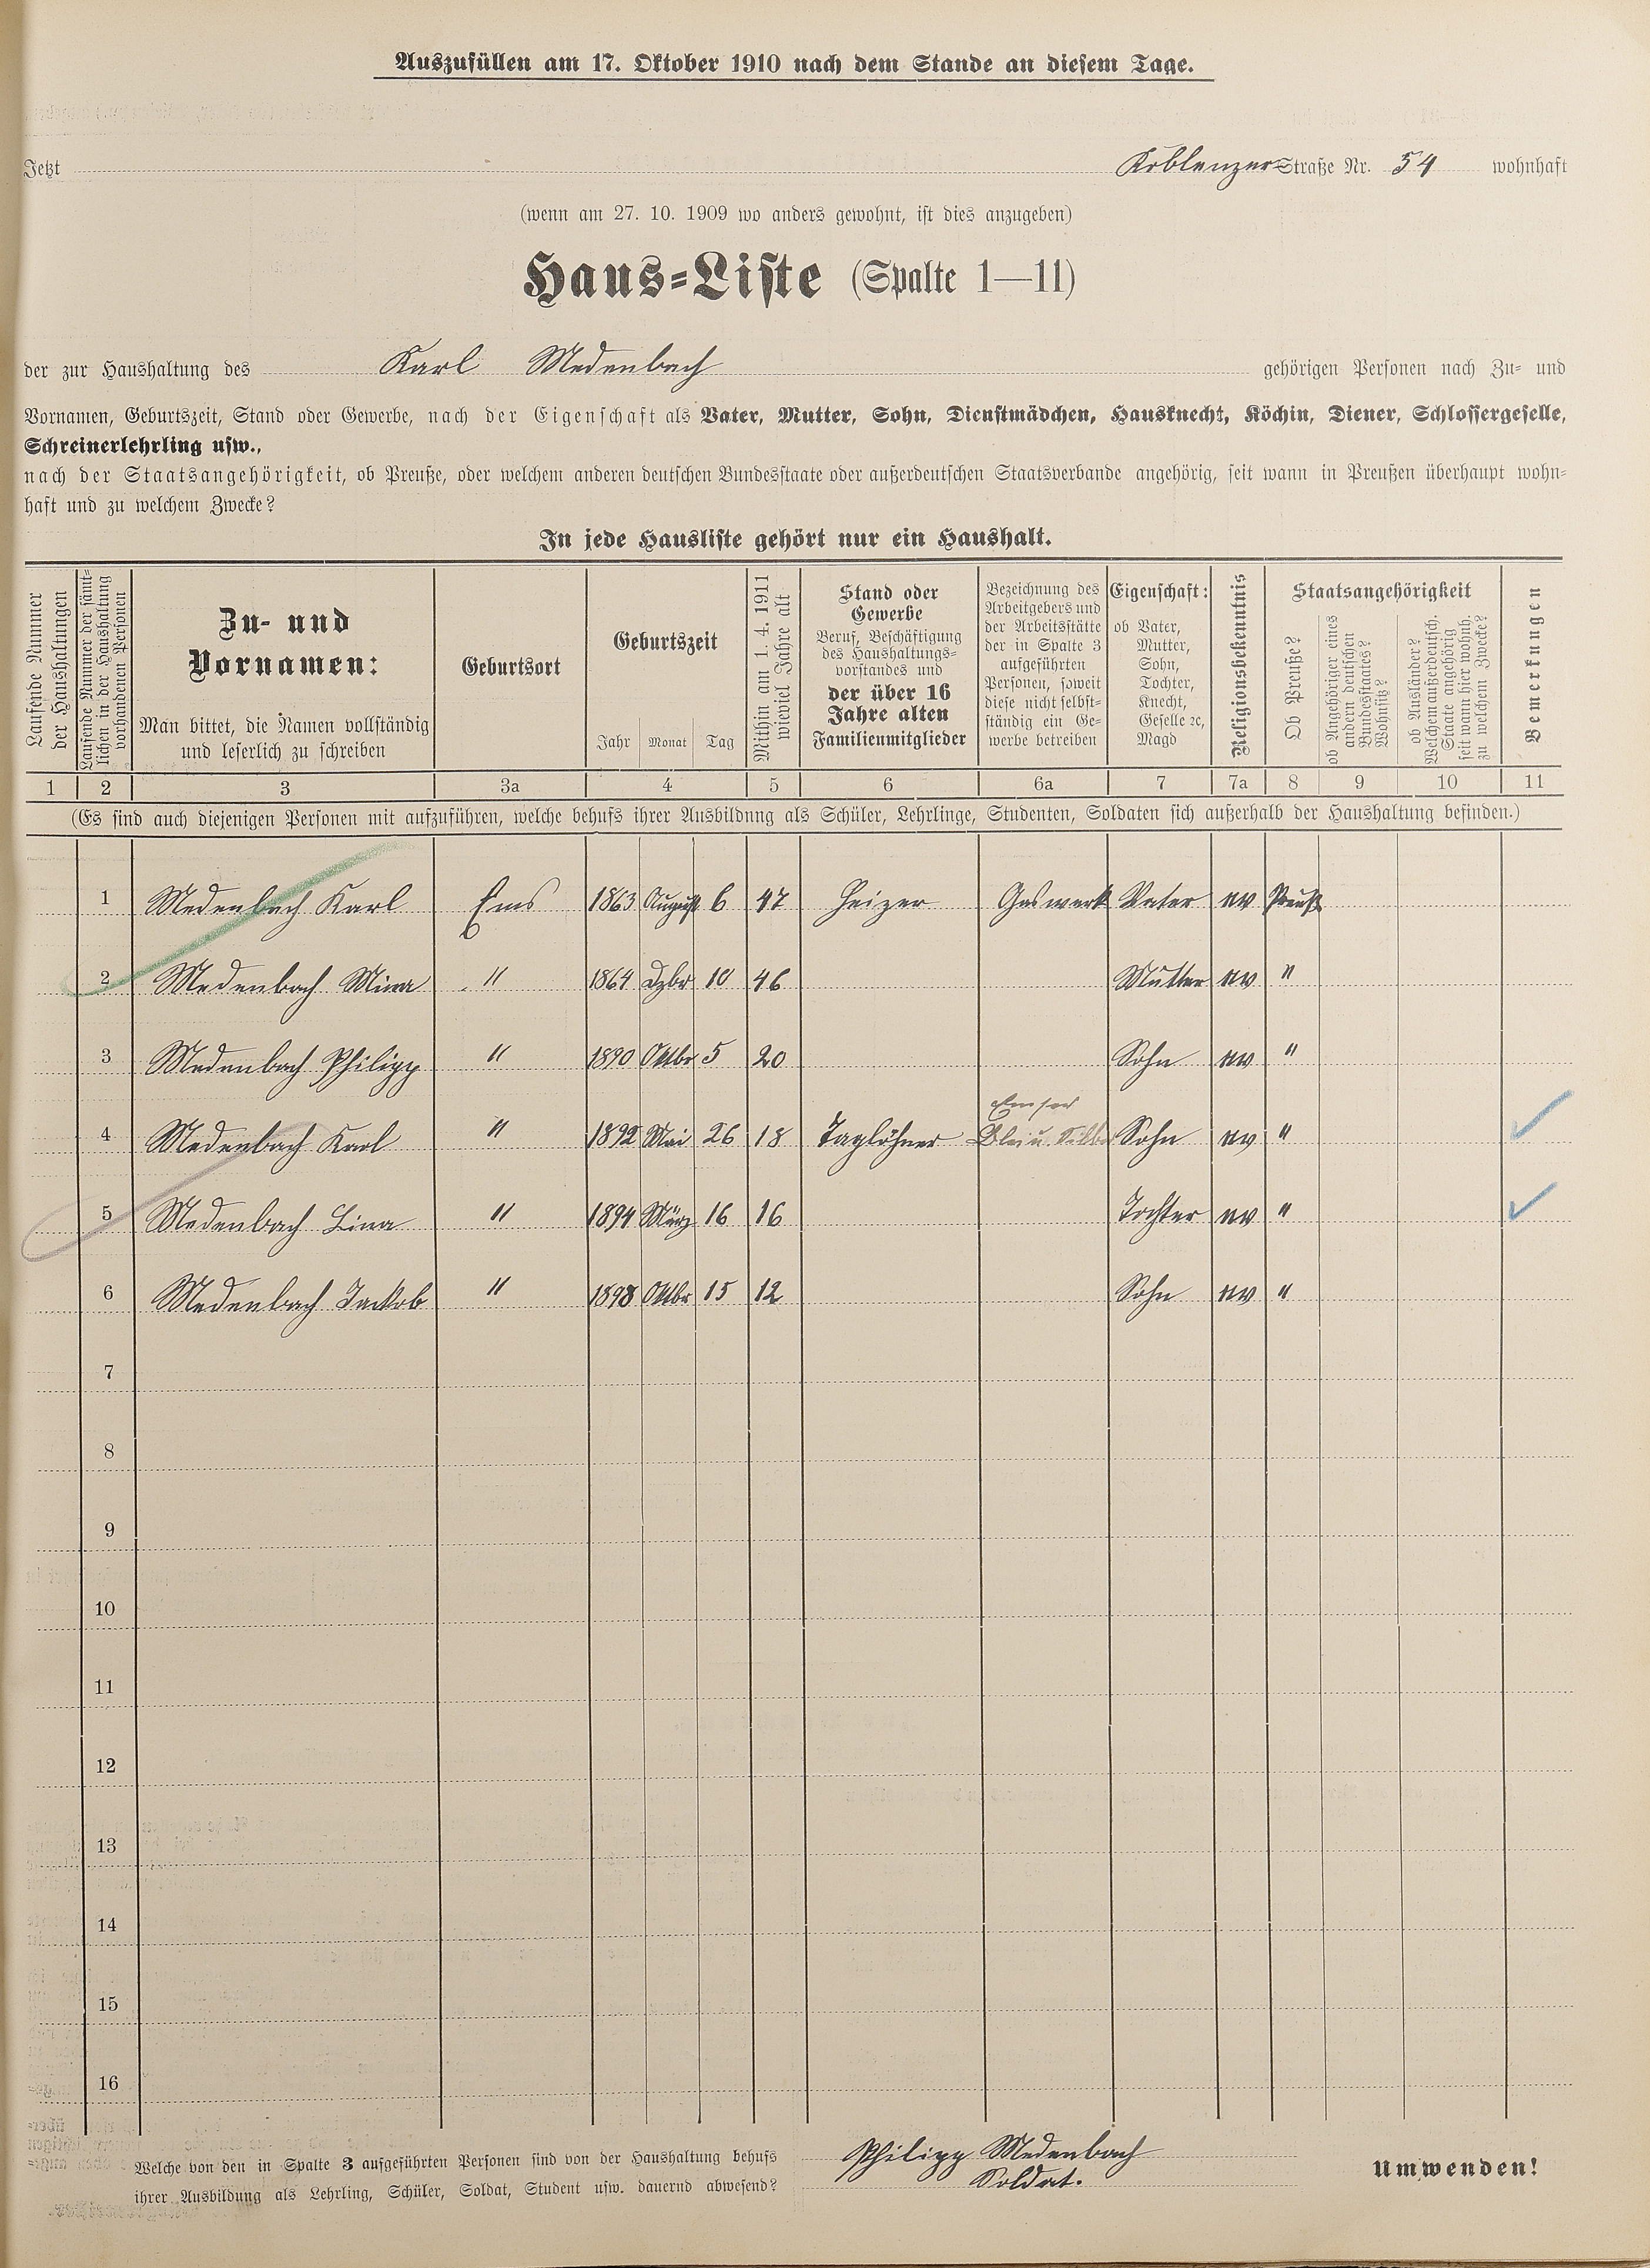 Auszufüllen am 17. Oktober 1910 nach dem Stande an diesem Tage.
Jetzt Koblenzer Straße Nr. 54 wohnhaft
(wenn am 27. 10. 1909 wo anders gewohnt, ist dies anzugeben)
Haus-Liste (Spalte 1—11)
der zur Haushaltung des Karl Medenbach gehörigen Personen nach Zu- und
Vornamen, Geburtszeit, Stand oder Gewerbe, nach der Eigenschaft als Vater, Mutter, Sohn, Dienstmädchen, Hausknecht, Köchin, Diener, Schlossergeselle,
Schreinerlehrling usw.,
nach der Staatsangehörigkeit, ob Preuße, oder welchem anderen deutschen Bundesstaate oder außerdeutschen Staatsverbande angehörig, seit wann in Preußen überhaupt wohn-
haft und zu welchem Zwecke?
In jede Hausliste gehört nur ein Haushalt.
Laufende Nummer
der Haushaltungen
Laufende Nummer der sämt-
lichen in der Haushaltung
vorhandenen Personen
Zu- und
Vornamen:
Man bittet, die Namen vollständig
und leserlich zu schreiben
Geburtsort
Geburtszeit
Jahr Monat Tag
Mithin am 1. 4. 1911
wieviel Jahre alt
Stand oder
Gewerbe
Beruf, Beschäftigung
des Haushaltungs-
vorstandes und
der über 16
Jahre alten
Familienmitglieder
Bezeichnung des
Arbeitgebers und
der Arbeitsstätte
der in Spalte 3
aufgeführten
Personen, soweit
diese nicht selbst-
ständig ein Ge-
werbe betreiben
Eigenschaft:
ob Vater,
Mutter,
Sohn,
Tochter,
Knecht,
Geselle ꝛc,
Magd
Religionsbekenntnis
Staatsangehörigkeit
Ob Preuße?
ob Angehöriger eines
andern deutschen
Bundesstaates?
Wohnsitz?
ob Ausländer?
Welchem außerdeutsch.
Staate angehörig
seit wann hier wohnh.
zu welchem Zwecke?
Bemerkungen
1 2 3 3a 4 5 6 6a 7 7a 8 9 10 11
(Es sind auch diejenigen Personen mit aufzuführen, welche behufs ihrer Ausbildung als Schüler, Lehrlinge, Studenten, Soldaten sich außerhalb der Haushaltung befinden.)
1 Medenbach Karl Ems 1863 August 6 47 Heizer Gaswerk Vater ev Preuß
2 Medenbach Mina " 1864 Dzbr 10 46 Mutter ev "
3 Medenbach Philipp " 1890 Oktbr 5 20 Sohn ev "
Emser
4 Medenbach Karl " 1892 Mai 26 18 Taglöhner Blei u. Silber Sohn ev "
5 Medenbach Lina " 1894 März 16 16 Tochter ev "
6 Medenbach Jackob " 1898 Oktbr 15 12 Sohn ev "
7
8
9
10
11
12
13
14
15
16
Welche von den in Spalte 3 aufgeführten Personen sind von der Haushaltung behufs
ihrer Ausbildung als Lehrling, Schüler, Soldat, Student usw. dauernd abwesend?
Philipp Medenbach
Soldat.
Umwenden!